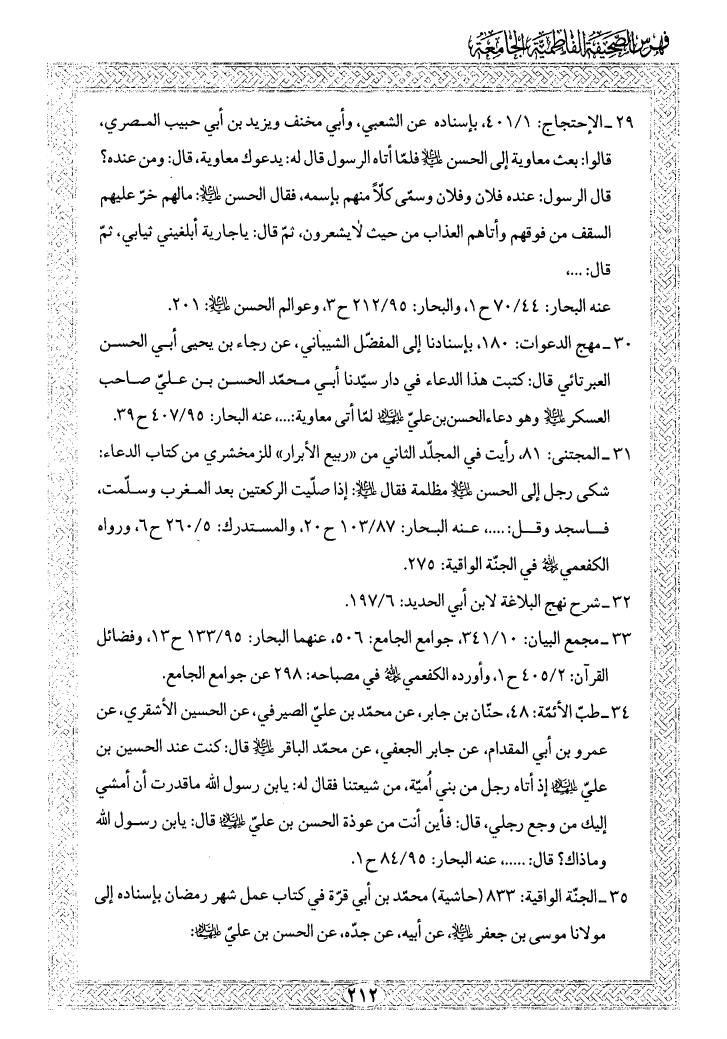 فهرس الصحيفة الفاطمية الجامعة
٢٩ ـ الإحتجاج: ٤٠١/١، بإسناده عن الشعبي، وأبي مخنف ويزيد بن أبي حبيب المصري،
قالوا: بعث معاوية إلى الحسن عليه السلام فلمّا أتاه الرسول قال له: يدعوك معاوية، قال: ومن عنده؟
قال الرسول: عنده فلان وفلان وسمّى كلّاً منهم بإسمه، فقال الحسن عليه السلام: مالهم خرّ عليهم
السقف من فوقهم وأتاهم العذاب من حيث لايشعرون، ثمّ قال: ياجارية أبلغيني ثيابي، ثمّ
قال: ...،
عنه البحار: ٧٠/٤٤ ح١، والبحار: ٢١٢/٩٥ ح٣، وعوالم الحسن عليه السلام: ٢٠١.
٣٠ ـ مهج الدعوات: ١٨٠، بإسنادنا إلى المفضّل الشيباني، عن رجاء بن يحيى أبي الحسن
العبرتائي قال: كتبت هذا الدعاء في دار سيّدنا أبي محمّد الحسن بن عليّ صاحب
العسكر عليه السلام وهو دعاءالحسن‌بن‌عليّ عليهما السلام لمّا أتى معاوية:...، عنه البحار: ٤٠٧/٩٥ ح٣٩.
٣١ ـ المجتنى: ٨١، رأيت في المجلّد الثاني من «ربيع الأبرار» للزمخشري من كتاب الدعاء:
شكى رجل إلى الحسن عليه السلام مظلمة فقال عليه السلام: إذا صلّيت الركعتين بعد المغرب وسلّمت،
فاسجد وقل: ....، عنه البحار: ١٠٣/٨٧ ح٢٠، والمستدرك: ٢٦٠/٥ ح٦، ورواه
الكفعمي رحمه الله في الجنّة الواقية: ٢٧٥.
٣٢ ـ شرح نهج البلاغة لابن أبي الحديد: ١٩٧/٦.
٣٣ ـ مجمع البيان: ٣٤١/١٠، جوامع الجامع: ٥٠٦، عنهما البحار: ١٣٣/٩٥ ح١٣، وفضائل
القرآن: ٤٠٥/٢ ح١، وأورده الكفعمي رحمه الله في مصباحه: ٢٩٨ عن جوامع الجامع.
٣٤ ـ طبّ الأئمّة: ٤٨، حنّان بن جابر، عن محمّد بن عليّ الصيرفي، عن الحسين الأشقري، عن
عمرو بن أبي المقدام، عن جابر الجعفي، عن محمّد الباقر عليه السلام قال: كنت عند الحسين بن
عليّ عليهما السلام إذ أتاه رجل من بني أُميّة، من شيعتنا فقال له: يابن رسول الله ماقدرت أن أمشي
إليك من وجع رجلي، قال: فأين أنت من عوذة الحسن بن عليّ عليهما السلام قال: يابن رسول الله
وماذاك؟ قال: .....، عنه البحار: ٨٤/٩٥ ح١.
٣٥ ـ الجنّة الواقية: ٨٣٣ (حاشية) محمّد بن أبي قرّة في كتاب عمل شهر رمضان بإسناده إلى
مولانا موسى بن جعفر عليه السلام، عن أبيه، عن جدّه، عن الحسن بن عليّ عليهما السلام:
٢١٢